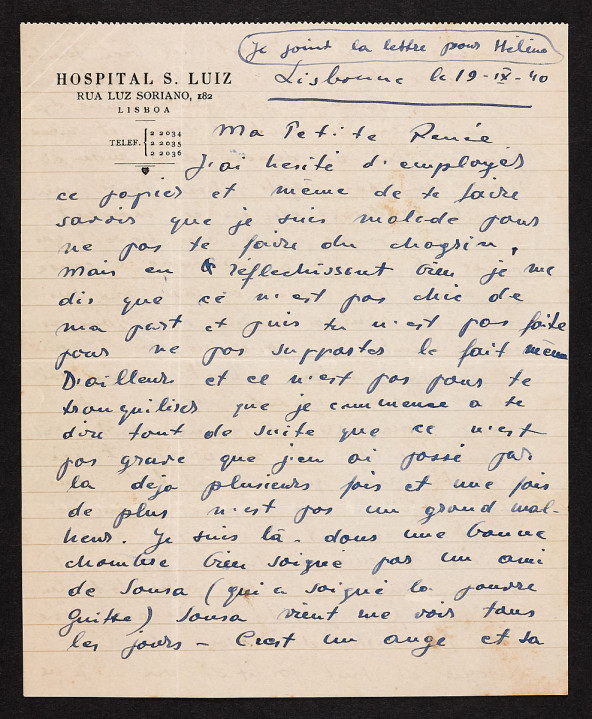 Je joint la lettre pour Hélène
HOSPITAL S. LUIZ
RUA LUZ SORIANO, 182
LISBOA
TELEF. { 2 2034
2 2035
2 2036
Lisbonne le 19-IX-40
Ma Petite Renée
J'ai hesité d'employer
ce papier et même de te faire
savoir que je suis malade pour
ne pas te faire du chagrin,
mais en reflechissant bien je me
dis que ce n'est pas chic de
ma part et puis tu n'est pas faite
pour ne pas supporter le fait même
D'ailleurs et ce n'est pas pour te
tranquiliser que je commence a te
dire tout de suite que ce n'est
pas grave que j'en ai passé par
la déja plusieurs fois et une fois
de plus n'est pas un grand mal-
heur. Je suis là dans une bonne
chambre bien soigné par un ami
de Sousa (qui a soigné la pauvre
Guitte) Sousa vient me voir tous
les jours — C'est un ange et sa